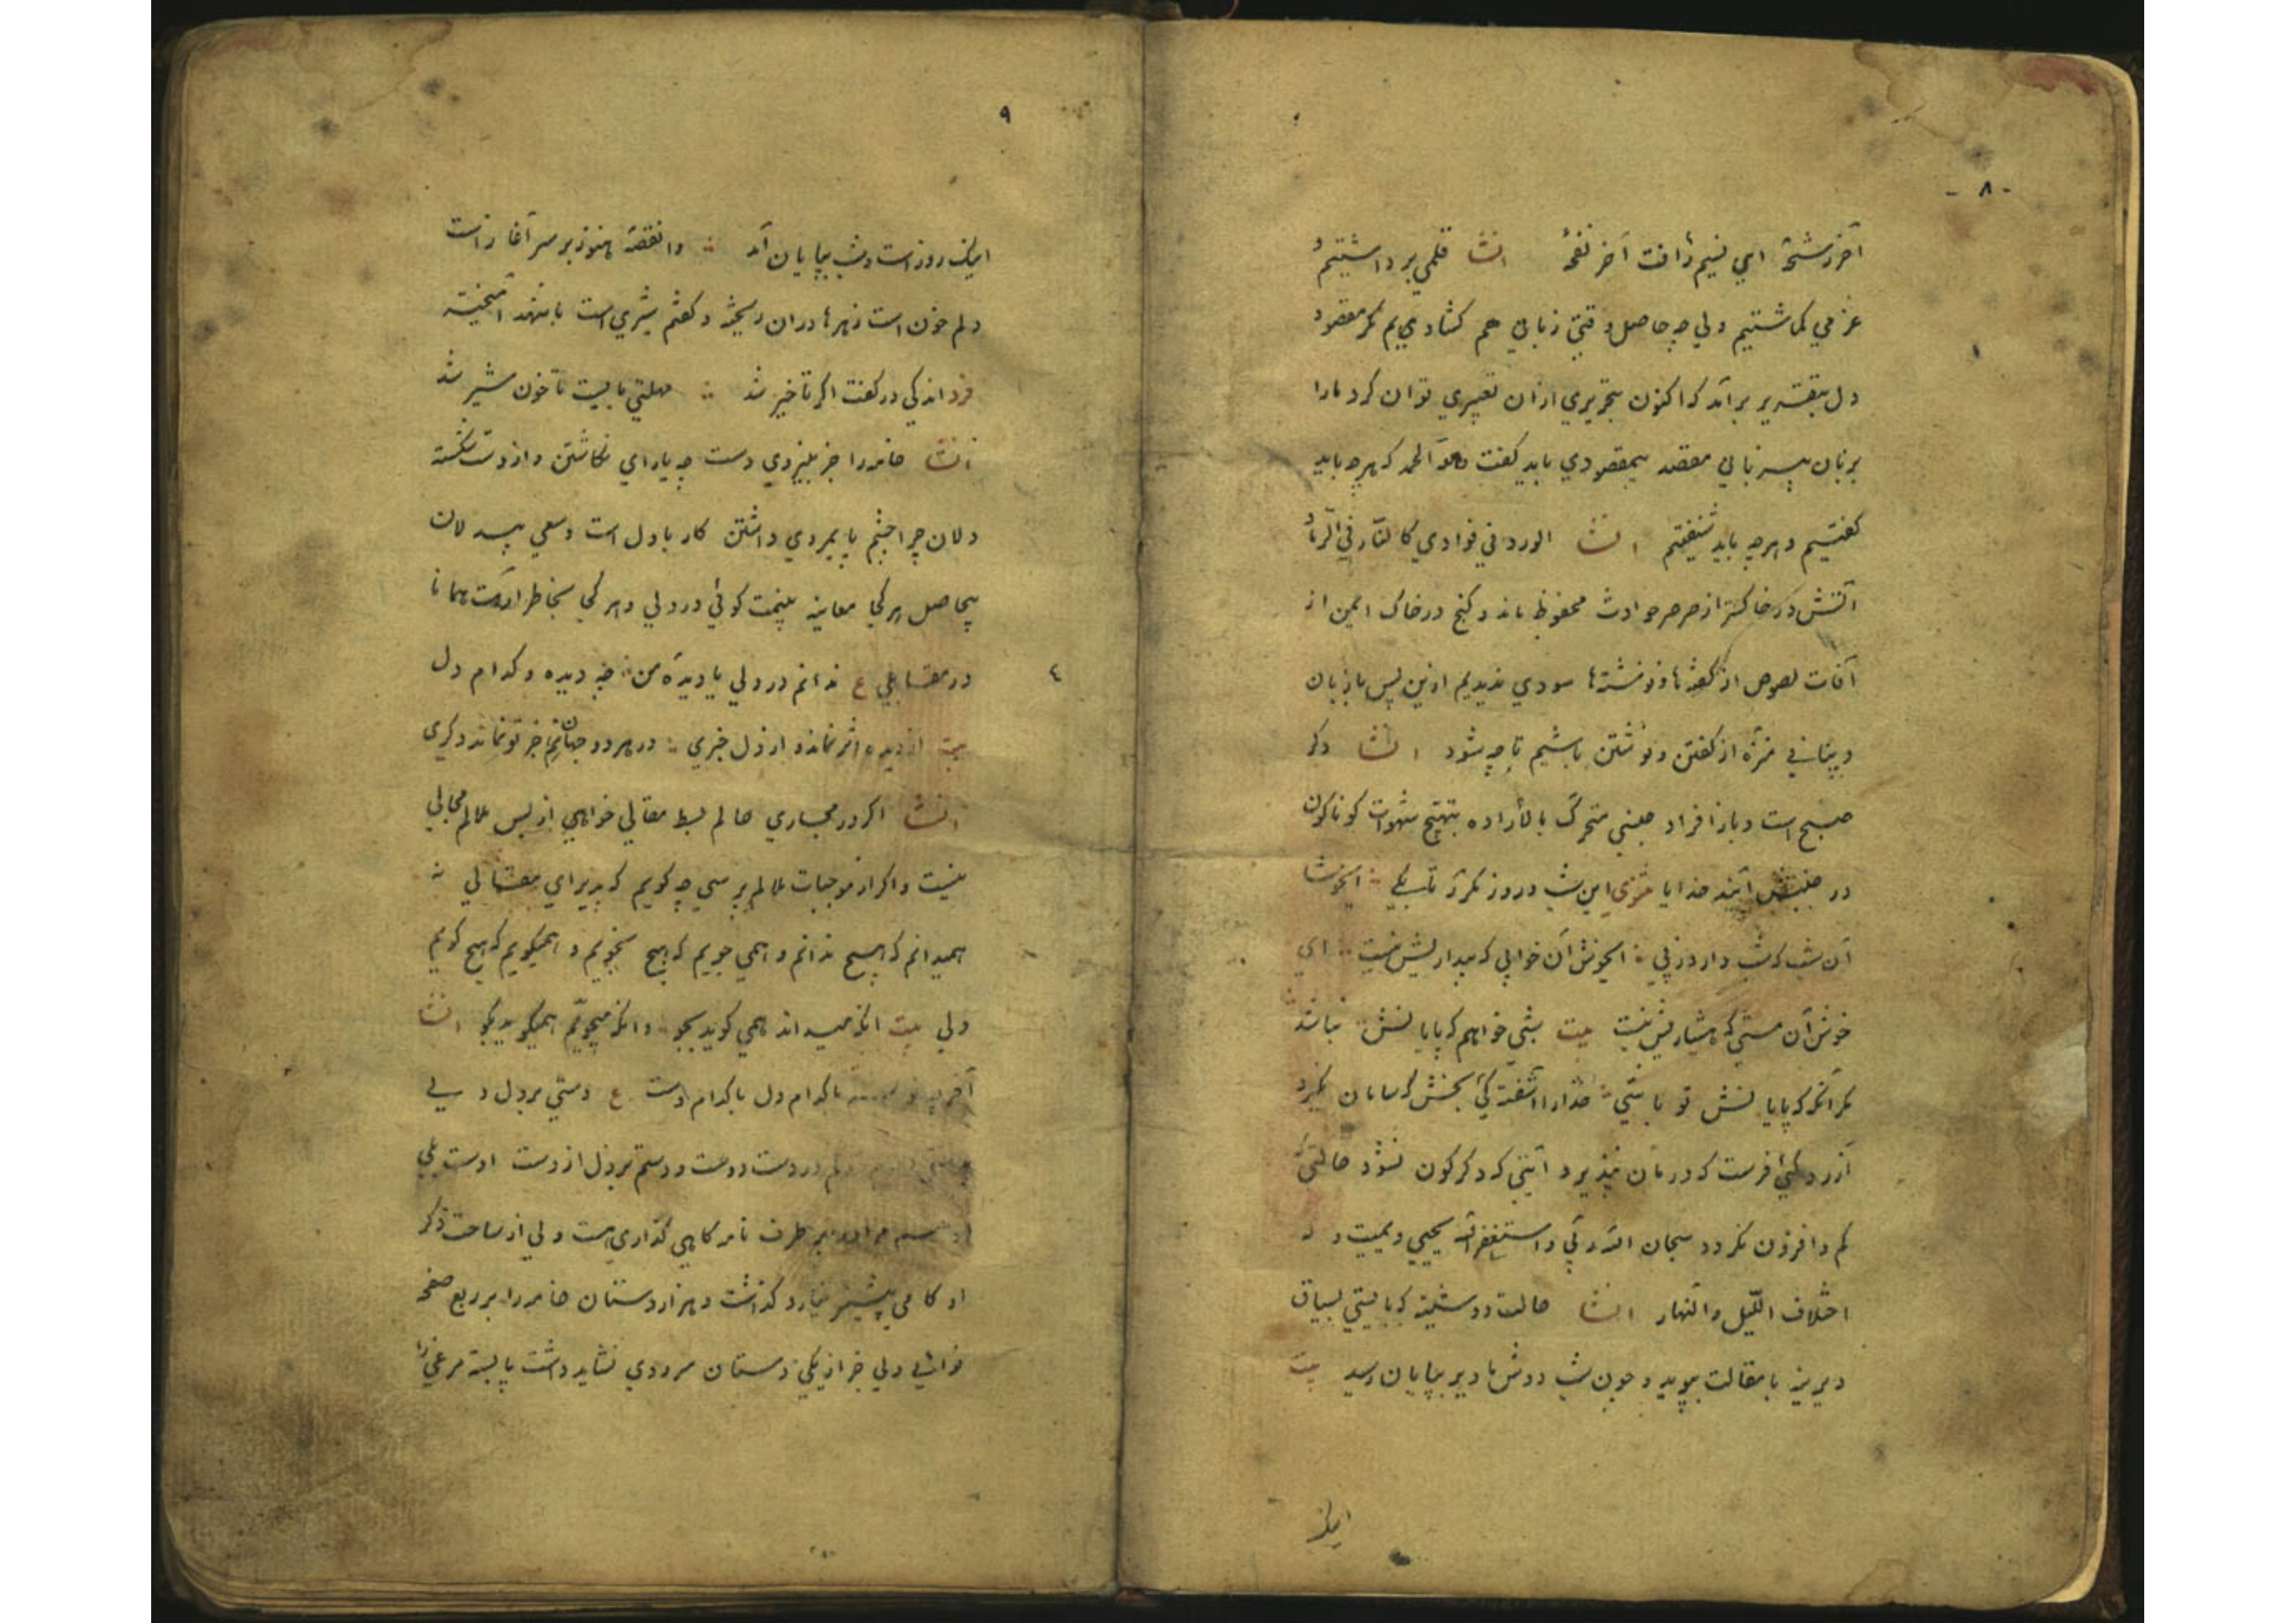 - ۸ -
آخر رشحهٔ ای نسیم رأفت آخر نفحهٔ انشا قلمی برداشتیم و
عزمی کماشتیم ولی چه حاصل وقتی زبانی هم کشادیم مکر مقصود
دل بتقدیر برآید که اکنون بتحریری ازان تعبیری توان کرد مارا
بزبان بیزبانی مقصد بیمقصودی باید کفت وله الحمد که هرچه باید
کفتیم و هرچه باید شنفتیم انشا الورد فی فوادی کالنار فی الرماد
آتش در خاکستر از صرصر حوادث محفوظ ماند و کنج در خاک ایمن از
آفات لصوص از کفته‌ها و نوشته‌ها سودی ندیدیم ازین پس با زبان
و بنانی منزه از کفتن و نوشتن باشیم تا چه شود انشا دکر
صبح است و باز افراد جنبی متحرک بالأراده بتهیج شهوات کوناکون
در جنبش آیند خدایا مثنوی این شب و روز مکرر تا بکی ایخوشا
آن شب که شب دارد ز پی ایخوش آن خوابی که بیداریش نیست ای
خوش آن مستی که هشیاریش نیست بیت شبی خواهم که پایانش نباشد
مکر آنکه که پایانش تو باشی خدارا آشفتکئی بخش که سامان نکیرد
آزردکئی فرست که درمان نپذیرد آیتی که دکرکون نشود حالتی که
کم و افزون نکردد سبحان الله ربی و استغفرالله یحیی و یمیت و له
اختلاف اللیل والنهار انشا حالت دوشینه که بایستی بسیاق
دیرینه با مقالت بپوید و چون شب دوش ما دیر بپایان رسید بیت
اینک
۹
اینک روز است و شب بپایان آمد وانقصه هنوز بر سر آغاز است
دلم خون است زهرها دران ریخته و کفتم شیری است با شهد آمیخته
فرد اندکی در کفت اکر تاخیر شد مهلتی بایست تا خون شیر شد
انشا خامه را جز بنیروی دست چه یارای نکاشتن و از دست شکسته
دلان چرا چشم پایمردی داشتن کار با دل است و سعی بیدلان
بیحاصل هر کجا معاینه بینمت کوئی در دلی و هر کجا بخاطر آرمت همانا
در مقابلی ع ندانم در دلی یا دیدهٔ من چه دیده و کدام دل
بیت از دیده اثر نماند و از دل خبری در هر دو جهانم جز تو نماند دکری
انشا اکر در مجاری حالم بسط مقالی خواهی از بس ملالم مجالی
نیست و اکر از موجبات ملالم پرسی چه کویم که پذیرای مقالی نه
همیدانم که هیچ ندانم و همی جویم که هیچ نجویم و همیکویم که هیچ نکویم
ولی بیت آنکه میداند همی کوید بجو وانکه میجویم همیکوید بکو انشا
آخر با کدام دل با کدام دست ع دستی بر دل و
دلم در دست دوست و دستم بر دل از دست اوست بلی
بر طرف نامه کاهی کذاری هست ولی از ساحت ذکر
او کامی پیشتر نیارد کذاشت و هزار دستان خامه را بر ربع صفحه
نوائی ولی جز از یکی دستان سرودی نشاید داشت پابسته مرغی را
٤